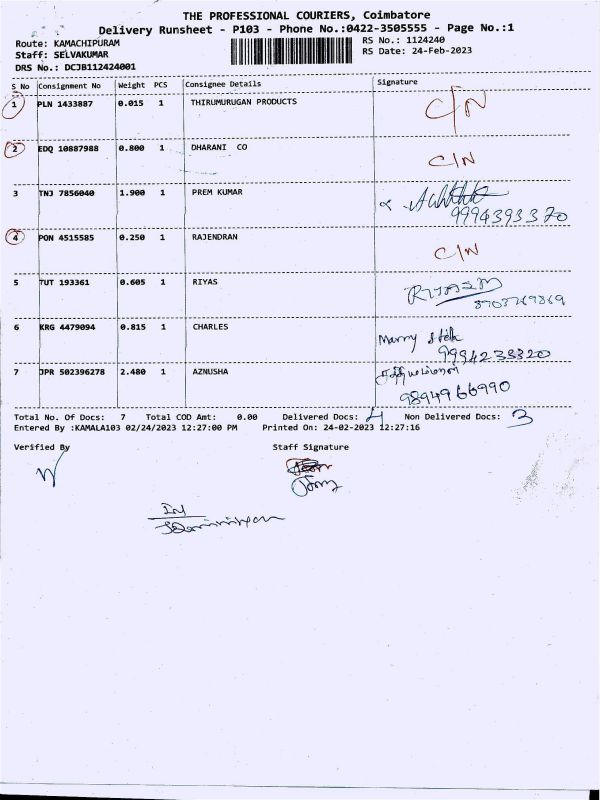 THE PROFESSIONAL COURIERS, Coimbatore
Delivery Runsheet - P103 - Phone No.:0422-3505555 - Page No.:1
Route: KAMACHIPURAM
RS No.: 1124240
Staff: SELVAKUMAR
RS Date: 24-Feb-2023
DRS No.: DCJB112424001
S No Consignment No Weight PCS Consignee Details Signature
1 PLN 1433887 0.015 1 THIRUMURUGAN PRODUCTS C/N
2 EDQ 10887988 0.800 1 DHARANI CO C/N
3 TNJ 7856040 1.900 1 PREM KUMAR
9994393370
4 PON 4515585 0.250 1 RAJENDRAN C/N
5 TUT 193361 0.605 1 RIYAS
6 KRG 4479094 0.815 1 CHARLES
9994233320
7 JPR 502396278 2.480 1 AZNUSHA
9894966990
Total No. Of Docs: 7 Total COD Amt: 0.00 Delivered Docs: 4 Non Delivered Docs: 3
Entered By :KAMALA103 02/24/2023 12:27:00 PM Printed On: 24-02-2023 12:27:16
Verified By Staff Signature